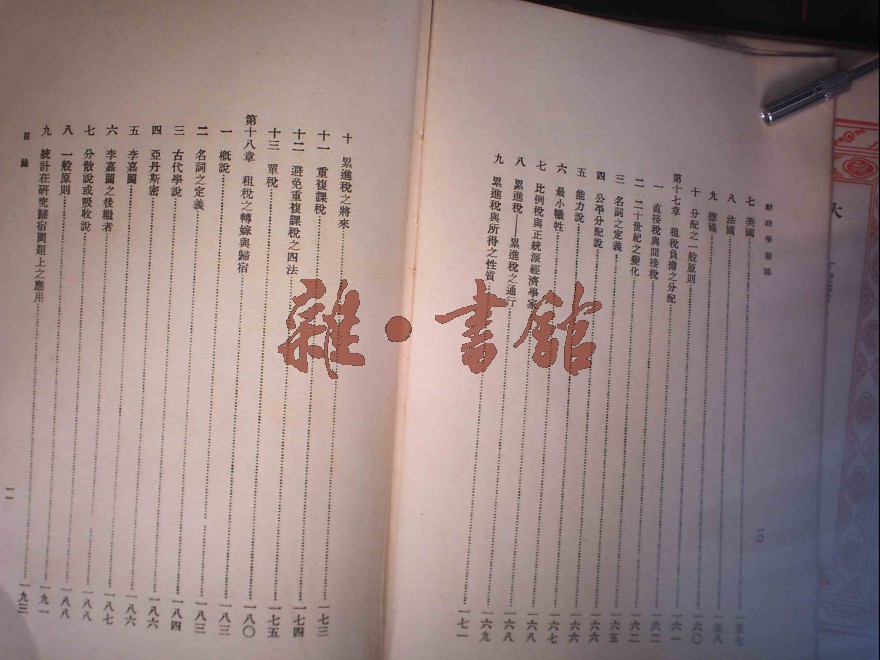 財政學新論
一〇
七 美國 一五七
八 法國 一五八
九 德國 一六〇
十 分配之一般原則 一六一
第十七章 租稅負擔之分配 一六二
一 直接稅與間接稅 一六二
二 二十世紀之變化 一六五
三 名詞之定義 一六六
四 公平分配說 一六六
五 能力說 一六八
六 最小犧牲 一六八
七 比例稅與正統派經濟學家 一六八
八 累進稅——累進稅之通行 一六九
九 累進稅與所得之性質 一七一
十 累進稅之將來 一七三
十一 重複課稅 一七四
十二 避免重複課稅之四法 一七五
十三 單稅 一八〇
第十八章 租稅之轉嫁與歸宿 一八三
一 概說 一八三
二 名詞之定義 一八四
三 古代學說 一八六
四 亞丹斯密 一八六
五 李嘉圖 一八七
六 李嘉圖之後繼者 一八八
七 分散說或吸收說 一八八
八 一般原則 一九一
九 統計在研究歸宿問題上之應用 一九三
目錄
一一
雜·書館
大